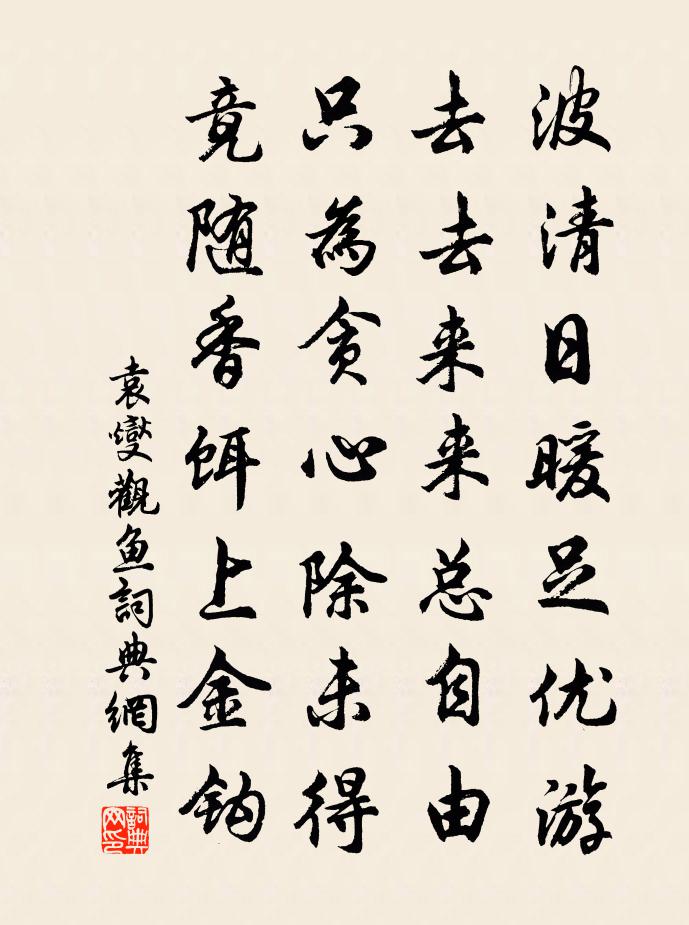 波清日暖足优游
去去来来总自由
只為贪心除未得
竟随香饵上金钩
袁燮觀鱼詞典網集
詞典网印